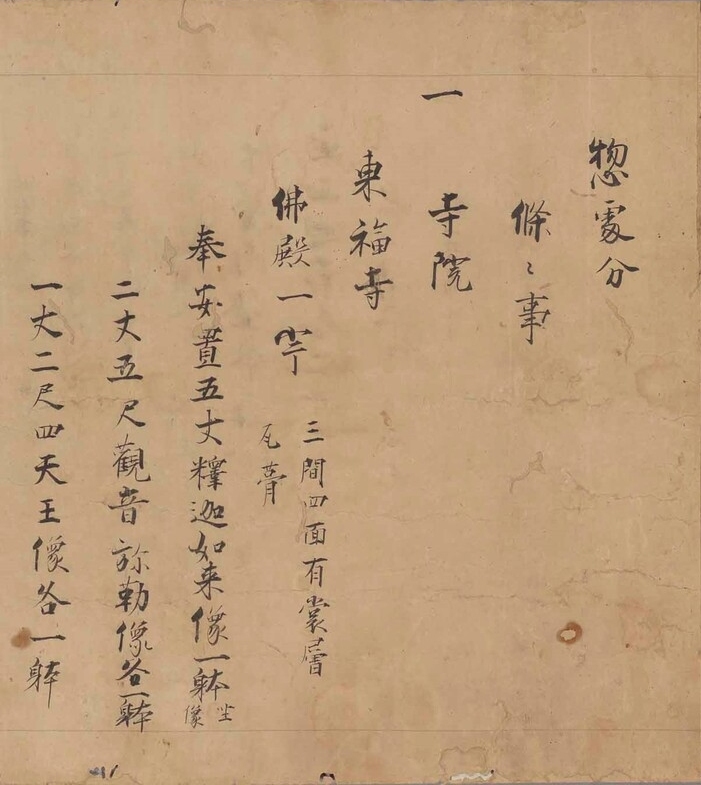 惣處分
條〻事
一
寺院
東福寺
佛殿一宇
三間四面有裳層
瓦葺
奉安置五丈釋迦如来像一躰
坐
像
二丈五尺觀音弥勒像各一躰
一丈二尺四天王像各一躰